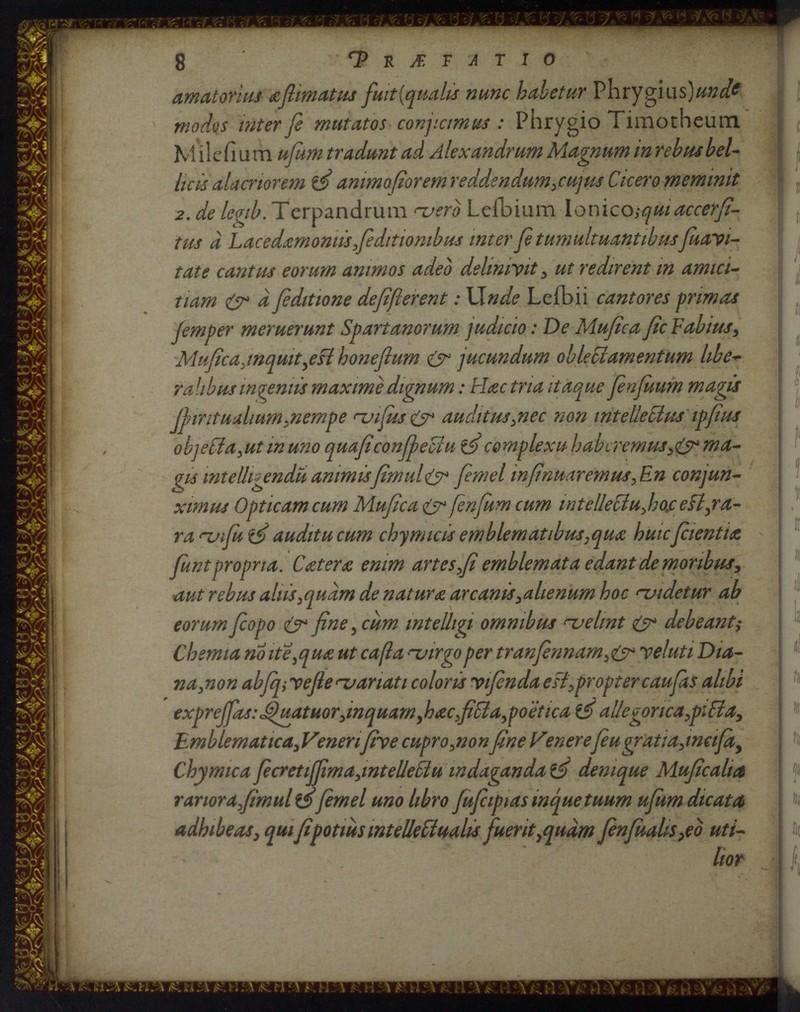 8 PRÆFATIO
amatorius æſtimatus fuit(qualis nunc habetur Phrygius)unde
modos inter ſe mutatos conjicimus : Phrygio Timotheum
Mileſium uſum tradunt ad Alexandrum Magnum in rebus bel-
licis alacriorem & animoſiorem reddendum,cujus Cicero meminit
2. de legib. Terpandrum verò Leſbium Ionico;qui accerſi-
tus à Lacedæmoniis,ſeditionibus inter ſe tumultuantibus ſuavi-
tate cantus eorum animos adeò delinivit, ut redirent in amici-
tiam & à ſeditione deſiſterent : Unde Leſbii cantores primas
ſemper meruerunt Spartanorum judicio : De Muſica ſic Fabius,
Muſica,inquit,eſt honeſtum & jucundum oblectamentum libe-
ralibus ingeniis maximè dignum : Hæc tria itaque ſenſuum magis
ſpiritualium,nempe viſus & auditus,nec non intellectus ipſius
objecta,ut in uno quaſi conſpectu & complexu haberemus,& ma-
gis intelligendũ animis ſimul & ſemel inſinuaremus,En conjun-
ximus Opticam cum Muſica & ſenſum cum intellectu,hoc eſt,ra-
ra viſu & auditu cum chymicis emblematibus,quæ huic ſcientiæ
ſunt propria. Cætera enim artes,ſi emblemata edant de moribus,
aut rebus aliis,quàm de naturæ arcanis,alienum hoc videtur ab
eorum ſcopo & fine, cùm intelligi omnibus velint & debeant;
Chemia nõ itẽ,quæ ut caſta virgo per tranſennam,& veluti Dia-
na,non abſq; veſte variati coloris viſenda eſt,propter cauſas alibi
expreſſas: Quatuor,inquam,hæc,ficta,poëtica & allegorica,picta,
Emblematica,Veneri ſive cupro,non ſine Venere ſeu gratia,inciſa,
Chymica ſecretiſſima,intellectu indaganda & denique Muſicalia
rariora,ſimul & ſemel uno libro ſuſcipias inque tuum uſum dicata
adhibeas, qui ſi potiùs intellectualis fuerit,quàm ſenſualis,eò uti-
lior